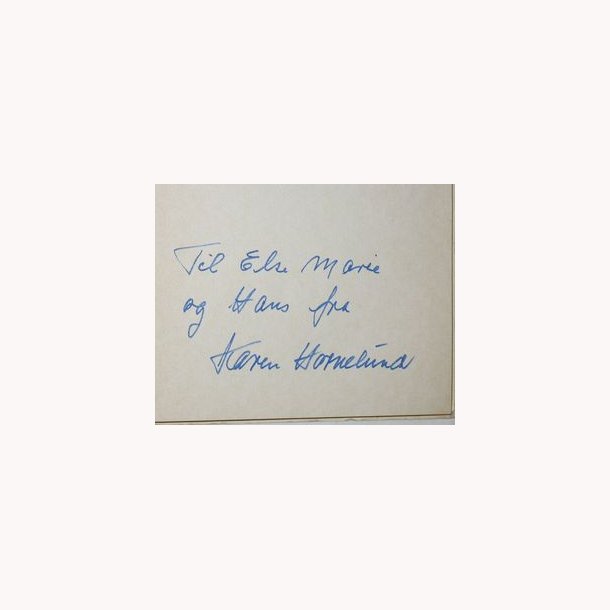 Til Else Marie
og Hans fra
Karen Hornelund